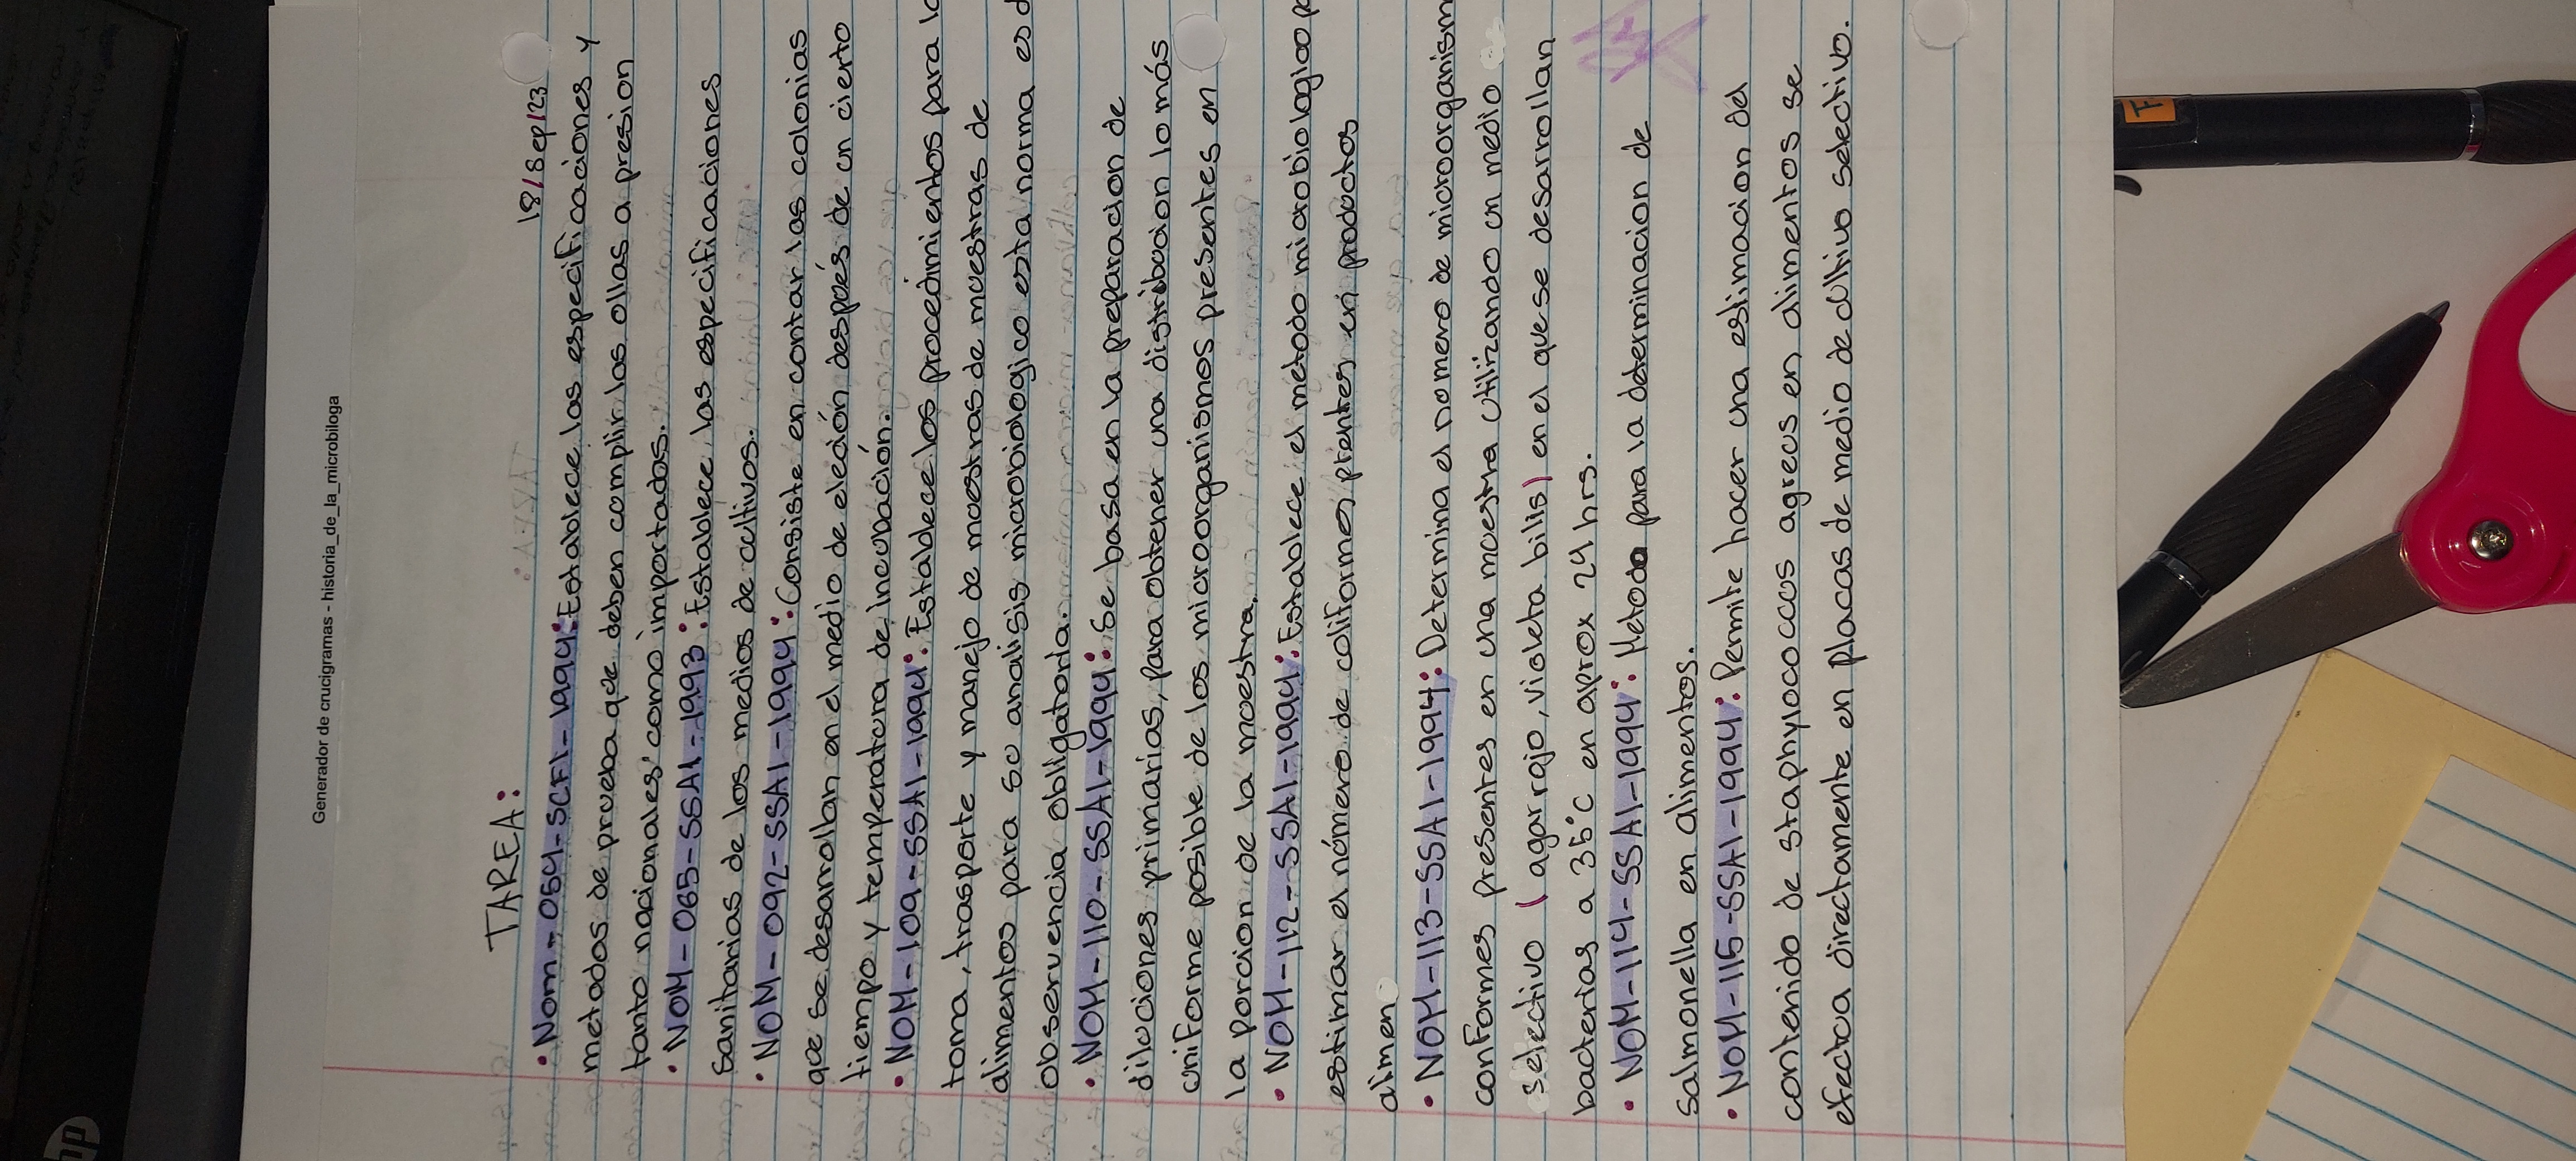 Generador de crucigramas - historia_de_la_microbiloga
18/Sep/23
TAREA:
• Nom-054-SCFI-1994: Establece las especificaciones y
metodos de prueba que deben complir las ollas a presion
tanto nacionales como importados.
• NOM-065-SSA1-1993: Establece las especificaciones
sanitarias de los medios de cultivos.
• NOM-092-SSA1-1994: Consiste en contar las colonias
que se desarrollan en el medio de eleción después de un cierto
tiempo y temperatura de incubación.
• NOM-109-SSA1-1994: Establece los procedimientos para la
toma, trasporte y manejo de muestras de muestras de
alimentos para su analisis microbiologico esta norma es d
observencia obligatoria.
• NOM-110-SSA1-1994: Se basa en la preparacion de
diluciones primarias, para obtener una distribucion lo más
uniforme posible de los microorganismos presentes en
la porcion de la muestra.
• NOM-112-SSA1-1994: Establece el metodo microbiologico p
estimar el número de coliformes prentes en productos
alimen
• NOM-113-SSA1-1994: Determina el numero de microorganism
conformes presentes en una muestra utilizando un medio
selectivo (agar rojo, violeta bilis) en el que se desarrollan
bacterias a 35°C en aprox 24 hrs.
• NOM-114-SSA1-1994: Metodo para la determinacion de
salmonella en alimentos.
• NOM-115-SSA1-1994: Permite hacer una estimacion del
contenido de staphylococcus agreus en alimentos se
efectua directamente en placas de medio de cultivo selectivo.
hp